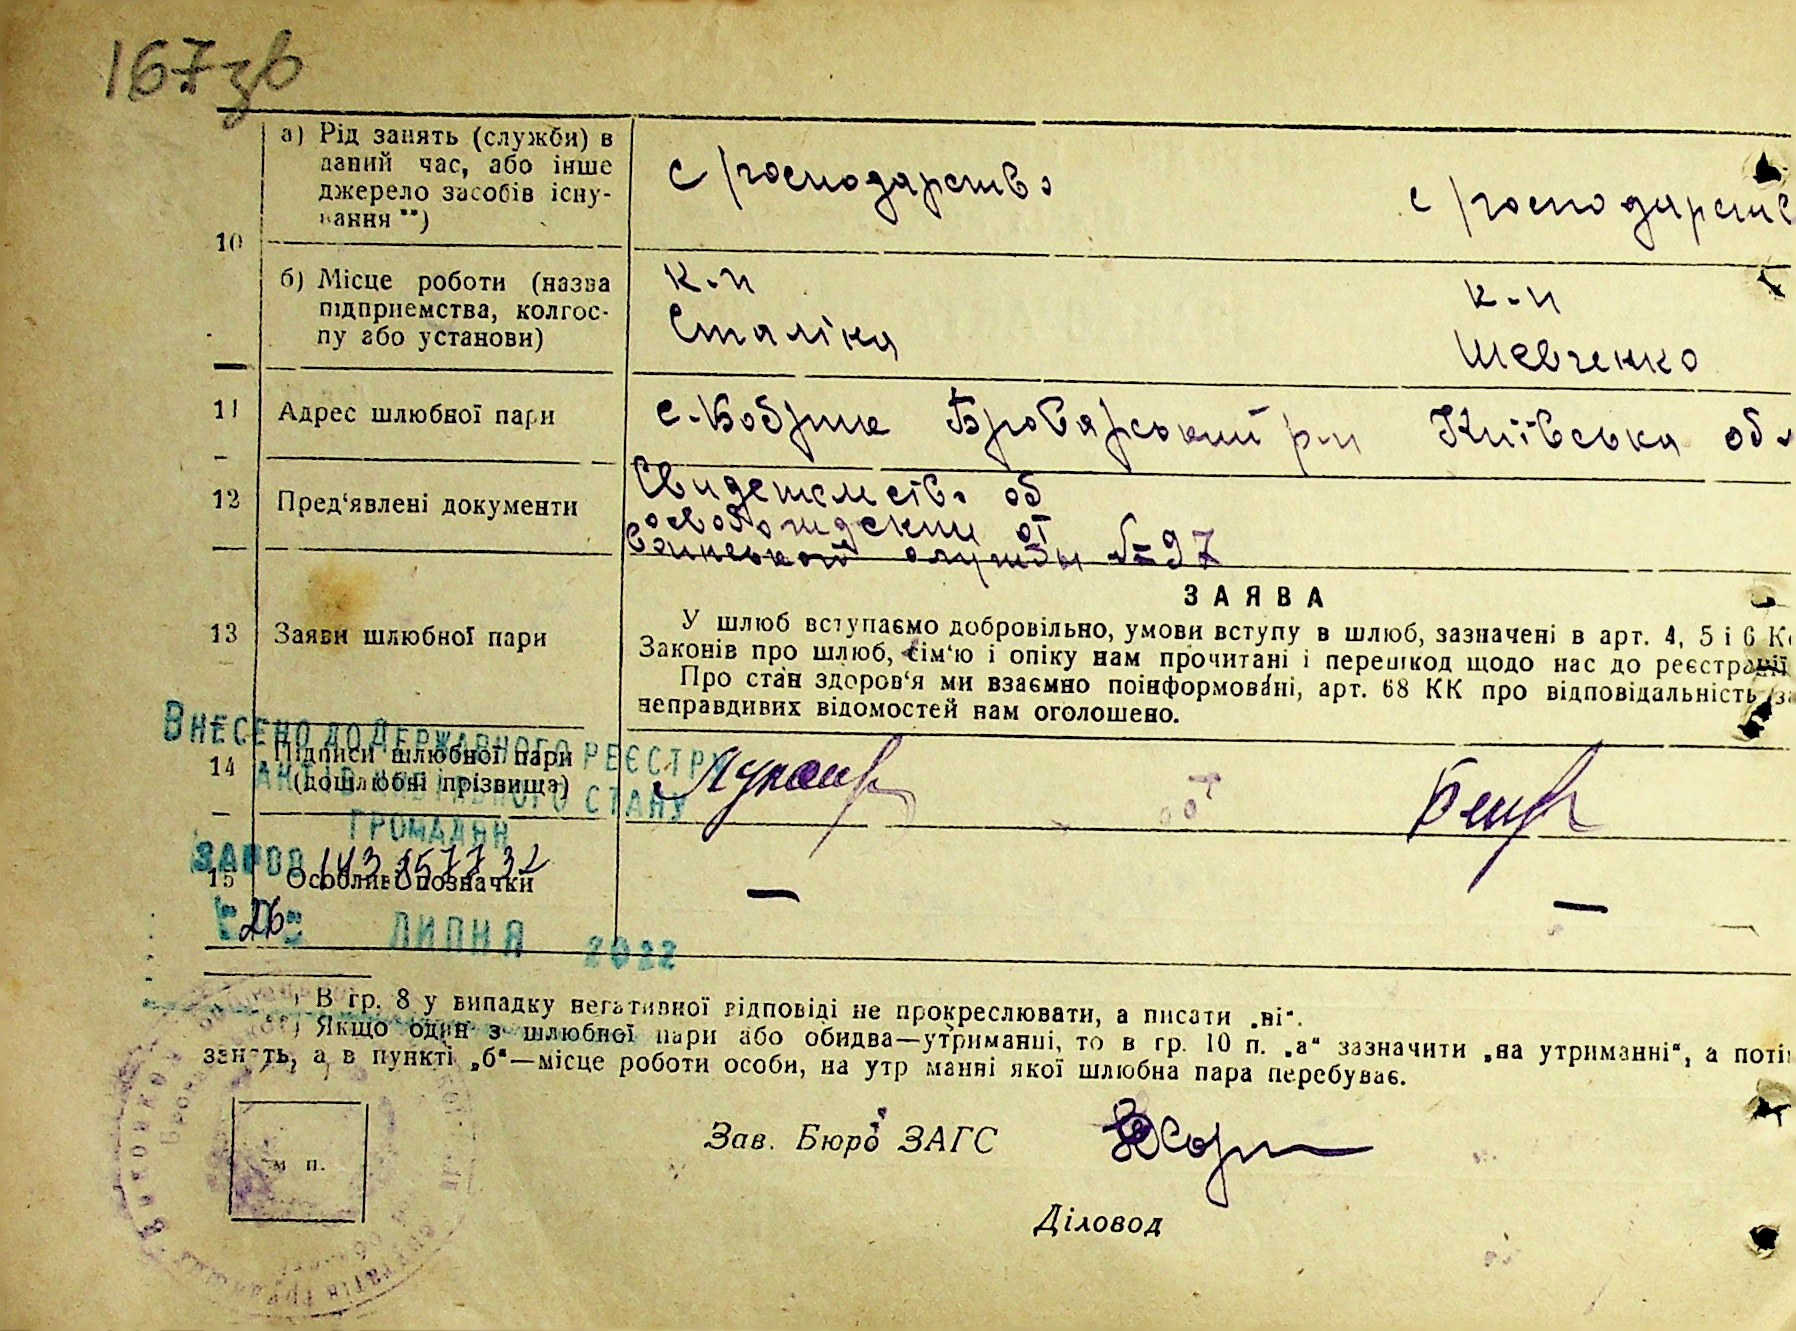 167зв
а) Рід занять (служби) в
даний час, або інше
джерело засобів існу-
вання **)
с/господарство
с/господарств
10
б) Місце роботи (назва
підприємства, колгос-
пу або установи)
к-п
Сталіна
к-п
Шевченко
11
Адрес шлюбної пари
с. Бобрик Броварський р-н Київська об
12
Пред‘явлені документи
Свидетельство об
освобождении от
воинської службы №97
ЗАЯВА
13
Заяви шлюбної пари
У шлюб вступаємо добровільно, умови вступу в шлюб, зазначені в арт. 4, 5 і 6 К
Законів про шлюб, сім‘ю і опіку нам прочитані і перешкод щодо нас до реєстрації
Про стан здоров‘я ми взаємно поінформовані, арт. 68 КК про відповідальність за
неправдивих відомостей нам оголошено.
ВНЕСЕНО ДО ДЕРЖАВНОГО РЕЄСТРУ
АКТІВ ЦИВІЛЬНОГО СТАНУ
ГРОМАДЯН
14
Підписи шлюбної пари
(дошлюбні прізвища)
15
Особливі позначки
—
—
26
ЛИПНЯ 2022
) В гр. 8 у випадку негативної відповіді не прокреслювати, а писати „ні“.
) Якщо один з шлюбної пари або обидва—утриманці, то в гр. 10 п. „а“ зазначити „на утриманні“, а поті
занять, а в пункті „б“—місце роботи особи, на утр манні якої шлюбна пара перебуває.
м п.
Зав. Бюро ЗАГС
Діловод